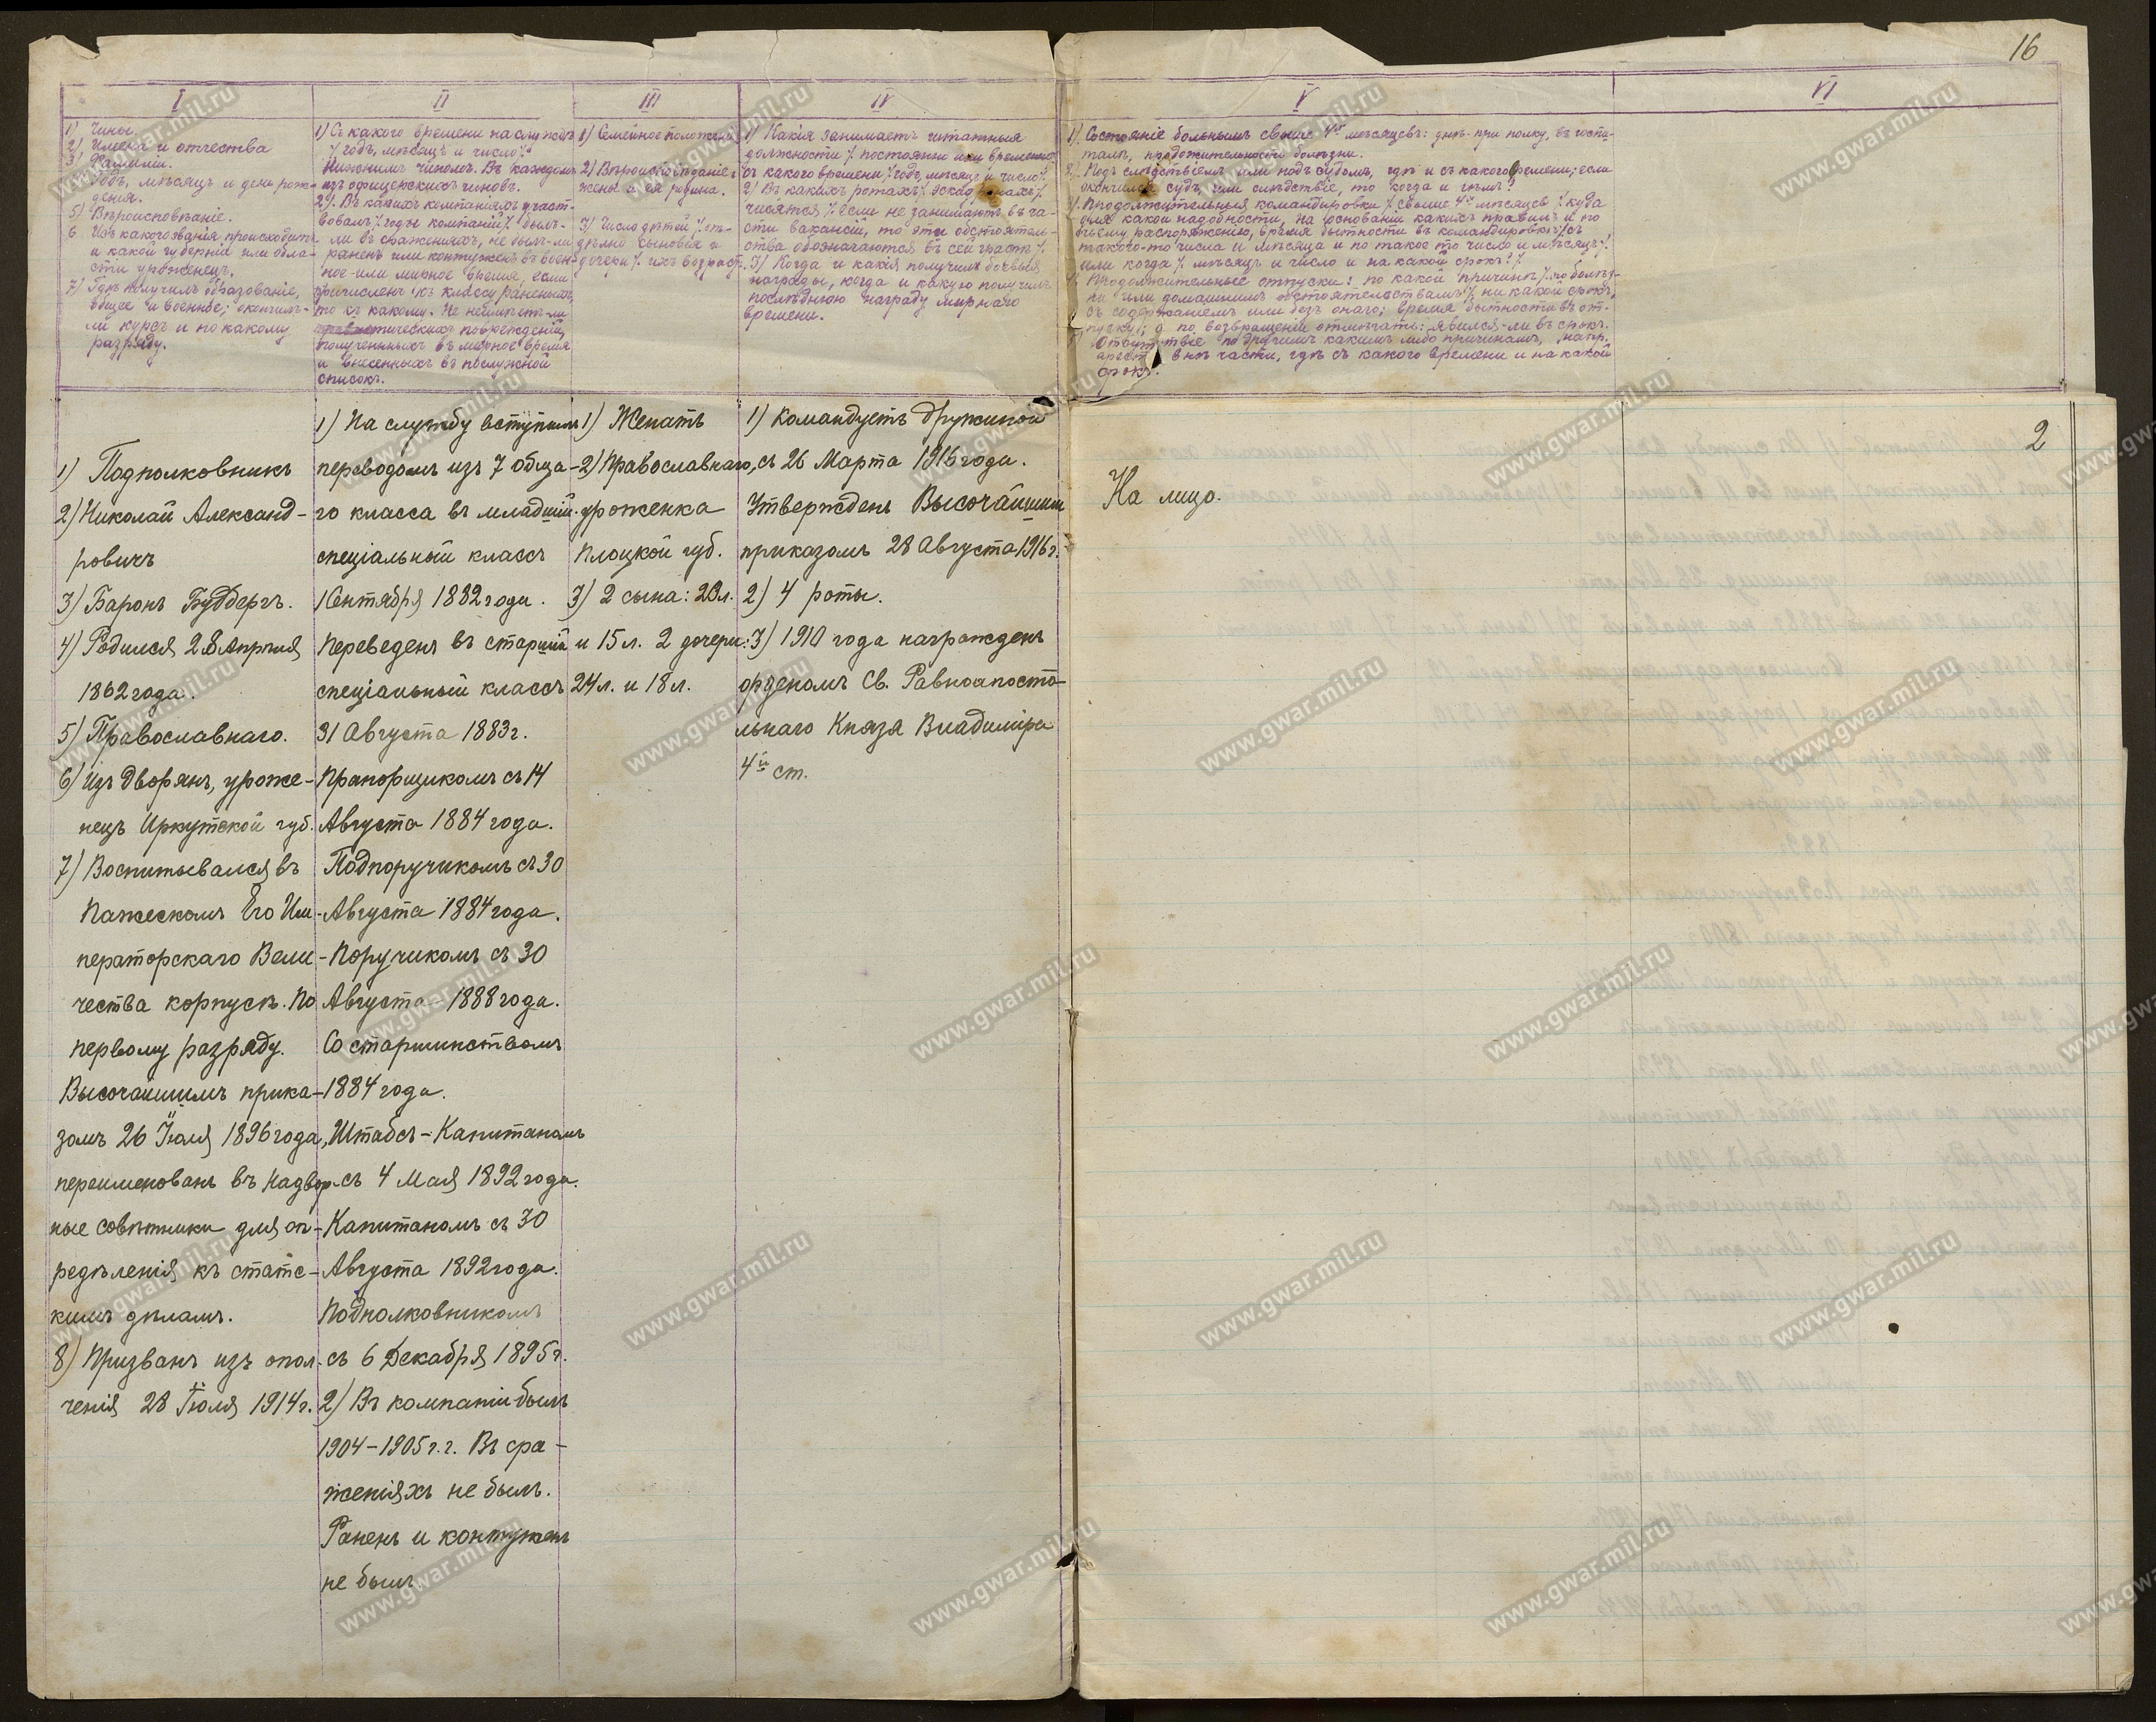 16
I
1) Чины.
2) Имена и отчества
3) Фамиліи.
Годъ, мѣсяцъ и день рож-
денія.
5) Вѣроисповѣданіе.
6 Изъ какого званія происходитъ
и какой губерніи или обла-
сти уроженецъ.
7) Гдѣ получилъ образованіе,
общее и военное; окончилъ-
ли курсъ и по какому
разряду.
II
1) Съ какого времени на службѣ
/ годъ, мѣсяцъ и число /
Нижнимъ чиномъ. Въ каждомъ
изъ офицерскихъ чиновъ.
2). Въ какихъ компаніяхъ участ-
вовалъ / годы компаній /; былъ-
ли въ сраженіяхъ, не былъ-ли
раненъ или контуженъ въ воен-
ное или мирное время, если
причисленъ къ классу раненыхъ,
то къ какому. Не имѣетъ-ли
поврежденій,
полученныхъ въ мирное время
и внесенныхъ въ послужной
списокъ.
III
1) Семейное положеніе
2) Вѣроисповѣданіе
жены и ея родина.
3) Число дѣтей / от-
дѣльно сыновья и
дочери /. ихъ возраст.
IV
1) Какія занимаетъ штатныя
должности / постоянно или временно
съ какого времени / годъ, мѣсяцъ и число /.
2) Въ какихъ ротахъ / эскадронахъ /
числятся / если не занимаютъ въ ча-
сти вакансіи, то эти обстоятель-
ства обозначаются въ сей графѣ /.
3) Когда и какія получилъ боевыя
награды, когда и какую получилъ
послѣднюю награду мирнаго
времени.
V
1) Состояніе больнымъ свыше 4хъ мѣсяцевъ: гдѣ- при полку, въ госпи-
талѣ, продолжительность болѣзни.
2) Подъ слѣдствіемъ или подъ судомъ, гдѣ и съ какого времени; если
окончился судъ, или слѣдствіе, то когда и чѣмъ?
Продолжительныя командировки / свыше 4хъ мѣсяцев / куда
для какой надобности, на основаніи какихъ правилъ и по
чьему распоряженію, время бытности въ командировкѣ / съ
такого-то числа и мѣсяца и по такое то число и мѣсяцъ /
или когда / мѣсяцъ и число и на какой срокъ? /.
Продолжительные отпуски: по какой причинѣ / по болѣз-
ни или домашнимъ обстоятельствамъ /, на какой срокъ,
съ содержаніемъ или безъ онаго; время бытности въ от-
пуску; а по возвращеніи отмѣчать: явился-ли въ срокъ.
Отсутствіе по другимъ какимъ либо причинамъ, напр.
арест внѣ части, гдѣ съ какого времени и на какой
срокъ.
VI
1) Подполковникъ
2) Николай Александ-
ровичъ
3) Баронъ Будбергъ.
4) Родился 28 Апрѣля
1862 года.
5) Православнаго.
6) Изъ дворянъ, уроже-
нецъ Иркутской губ.
7) Воспитывался въ
Пажескомъ Его Им-
ператорскаго Вели-
чества корпусѣ. По
первому разряду.
Высочайшимъ прика-
зомъ 26 Іюля 1896 года,
переименованъ въ Надвор-
ные совѣтники для оп-
редѣленія къ статс-
кимъ дѣламъ.
8) Призванъ изъ опол-
ченія 28 Іюля 1914 г.
1) На службу вступилъ
переводомъ изъ 7 обща-
го класса въ младшій
спеціальный классъ
1 Сентября 1882 года.
Переведенъ въ старшій
спеціальный классъ
31 Августа 1883 г.
Прапорщикомъ съ 14
Августа 1884 года.
Подпоручикомъ съ 30
Августа 1884 года.
Поручикомъ съ 30
Августа 1888 года.
Со старшинствомъ
1884 года.
Штабсъ-Капитаномъ
съ 4 Мая 1892 года.
Капитаномъ съ 30
Августа 1892 года.
Подполковникомъ
съ 6 Декабря 1895 г.
2) Въ компаніи былъ
1904-1905 г.г. Въ сра-
женіяхъ не былъ.
Раненъ и контуженъ
не былъ.
1) Женатъ
2) Православнаго,
уроженка
Плоцкой губ.
3) 2 сына: 20 л.
и 15 л. 2 дочери:
24 л. и 18 л.
1) Командуетъ дружиной
съ 26 Марта 1916 года.
Утвержденъ Высочайшим
приказомъ 28 Августа 1916 г.
2) 4 роты.
3) 1910 года награжденъ
орденомъ Св. Равноапосто-
льнаго Князя Владиміра
4й ст.
2
На лицо.
www.gwar.mil.ru